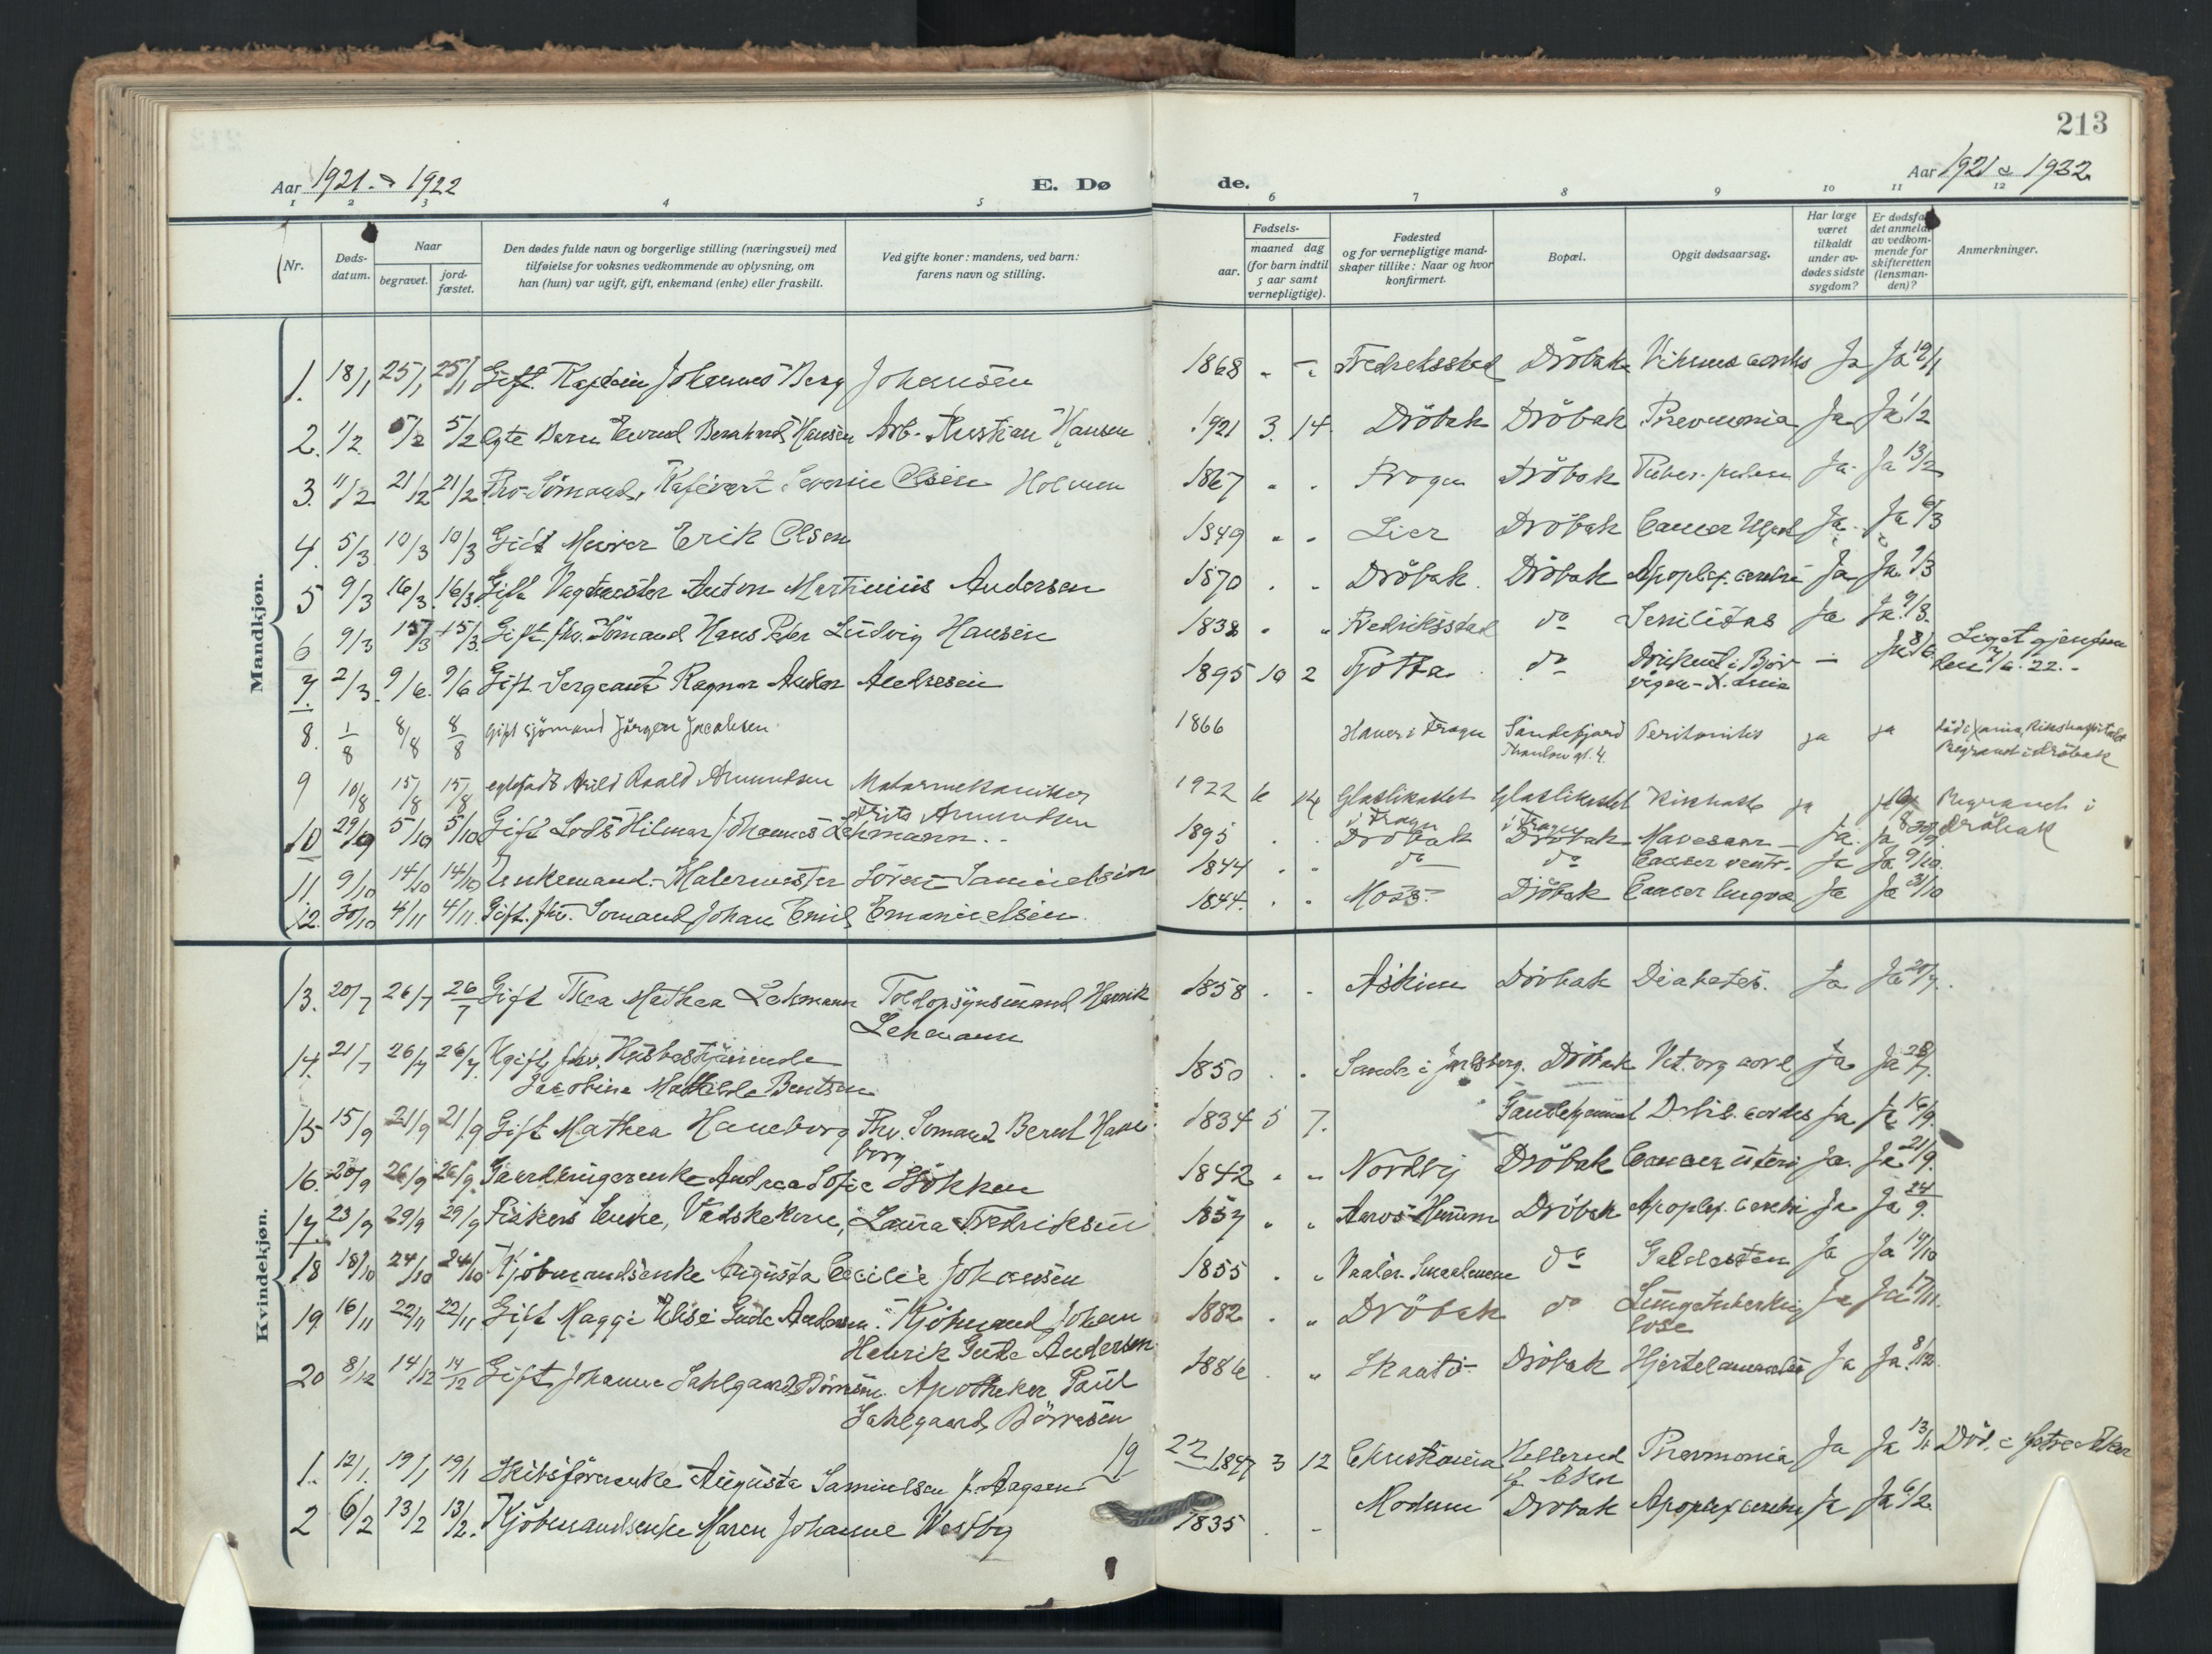 213
Aar 1921 & 1922 E. Dø de. Aar 1921 & 1932
1 2 3 4 5 6 7 8 9 10 11 12
Nr.
Døds-datum.
Naar
begravet. jord-fæstet.
Den dødes fulde navn og borgerlige stilling (næringsvei) med
tilføielse for voksnes vedkommende av oplysning, om
han (hun) var ugift, gift, enkemand (enke) eller fraskilt.
Ved gifte koner: mandens, ved barn:
farens navn og stilling.
Fødsels-
aar. maaned dag
(for barn indtil
5 aar samt
vernepligtige).
Fødested
og for vernepligtige mand-
skaper tillike: Naar og hvor
konfirmert.
Bopæl.
Opgit dødsaarsag.
Har læge
været
tilkaldt
under av-
dødes sidste
sygdom?
Er dødsfal-
det anmeldt
av vedkom-
mende for
skifteretten
(lensman-
den)?
Anmerkninger.
Mandkjøn.
1. 18/1 25/1 25/1 Gift Kaptein Johannes Berg Johansen 1868 Fredriksstad Dröbak Vitium cordis Ja Ja 19/1
2. 1/2 5/2 5/2 Egte Barn Bernhard Hansen Arb. Kristian Hansen 1921 3. 14. Dröbak Dröbak Pnevmonia Ja Ja 1/2
3. 11/2 21/2 21/2 Fhv. Sömand, Severin Olsen Holmen 1867 Frogn Dröbak Tuber. pulm Ja Ja 13/2
4. 5/3 10/3 10/3 Gift Murer Erik Olsen 1849 Lier Dröbak Cancer Ja Ja 6/3
5 9/3 16/3 16/3 Gift Vagtmester Anton Martinius Andersen 1870 Dröbak Dröbak Apoplex. cerebri Ja Ja 9/3
6 9/3 15/3 15/3 Gift fhv. Sömand Hans Peter Ludvig Hansen 1838 Fredriksstad do Senilitas Ja Ja
7. 2/3 9/6 9/6 Gift Sergeant Ragnar Anker Andresen 1895 10 2 Tjøtta do Druknet i Bjør-
vigen - X.ania - Ja 8/6 Liget gjenfun-
den 7/6. 22. -
8. 1/8 8/8 8/8 gift sjömand Jörgen Jacobsen 1866 Haver i Frogn Sandefjord Peritonitis ja ja död i Xania, Rikshospitalet
Thaulow gt. 4. Begravet i Dröbak
9 10/8 15/8 15/8 egtefødt Arild Roald Amundsen Motormekaniker
Frits Amundsen 1922 6 14 Glaslikollet
i Frogn Glaslikollet
i Frogn Kikhoste ja ja Begravet i
Dröbak
10 29/9 5/10 5/10 Gift Lods Hilmar Johannes Lehmann. 1895 Dröbak Dröbak Mavesaar Ja Ja
11. 9/10 14/10 14/10 Enkemand. Malermester Sören Samuelsen 1844 do do Cancer ventr. Ja Ja 9/10
12. 30/10 4/11 4/11 Gift. fhv. Sømand Johan Emil Emanuelsen 1844. Moss Dröbak Cancer lingvæ Ja Ja 31/10
Kvindekjøn.
13. 20/7 26/7 26/7 Gift Thea Mathea Lehmann Toldopsynsmand Henrik
Lehmann 1858 Askim Dröbak Diabetes. Ja Ja 20/7.
14. 21/7 26/7 26/7 Ugift, fhv. Husbestyrerinde
Jacobine Mathilde Bentsen 1850 Sande i Jarlsberg. Dröbak Vit. org cord Ja Ja
15 15/9 21/9 21/9 Gift Mathea Haneborg Fhv. Sømand Bernt Hane-
borg 1834 5 7. Ja Ja 16/9.
16. 20/9 26/9 26/9 Gaardbrugerenke Andrea Sofie Stökken 1842 Nordby Dröbak Cancer uteri Ja. Ja 21/9.
17. 23/9 29/9 29/9 Fiskers Enke, Vadskekone, Laura Fredriksen 1857 Aaros Hurum Dröbak Apoplex. cerebri Ja Ja 24/9.
18 18/10 24/10 24/10 Kjöbmandsenke Augusta Cecilie Johansen 1855 Vaaler. Smaalenene do Galdesten Ja Ja 19/10
19. 16/11 22/11 22/11 Gift Maggi Elise Gude Andersen. Kjöbmand Johan
Henrik Gude Andersen 1882 Dröbak do Lungetuberku-
lose Ja Ja 17/11.
20 8/12 14/12 14/12 Gift, Johanne Sahlgaard Börresen. Apotheker Paul
Sahlgaard Börresen 1886 Skaatö Dröbak Hjertelammelse Ja Ja 8/12
19 22
1. 12/1. 19/1 19/1 Skibsförerenke Augusta Samuelsen f. Aagsen 1847 3 12 Christiania Pnevmonia Ja Ja 13/1 Död i Östre Aker
2 6/2 13/2 13/2. Kjöbmandsenke Maren Johanne Westby 1835 Modum Dröbak Apoplex cerebri Ja Ja 6/2